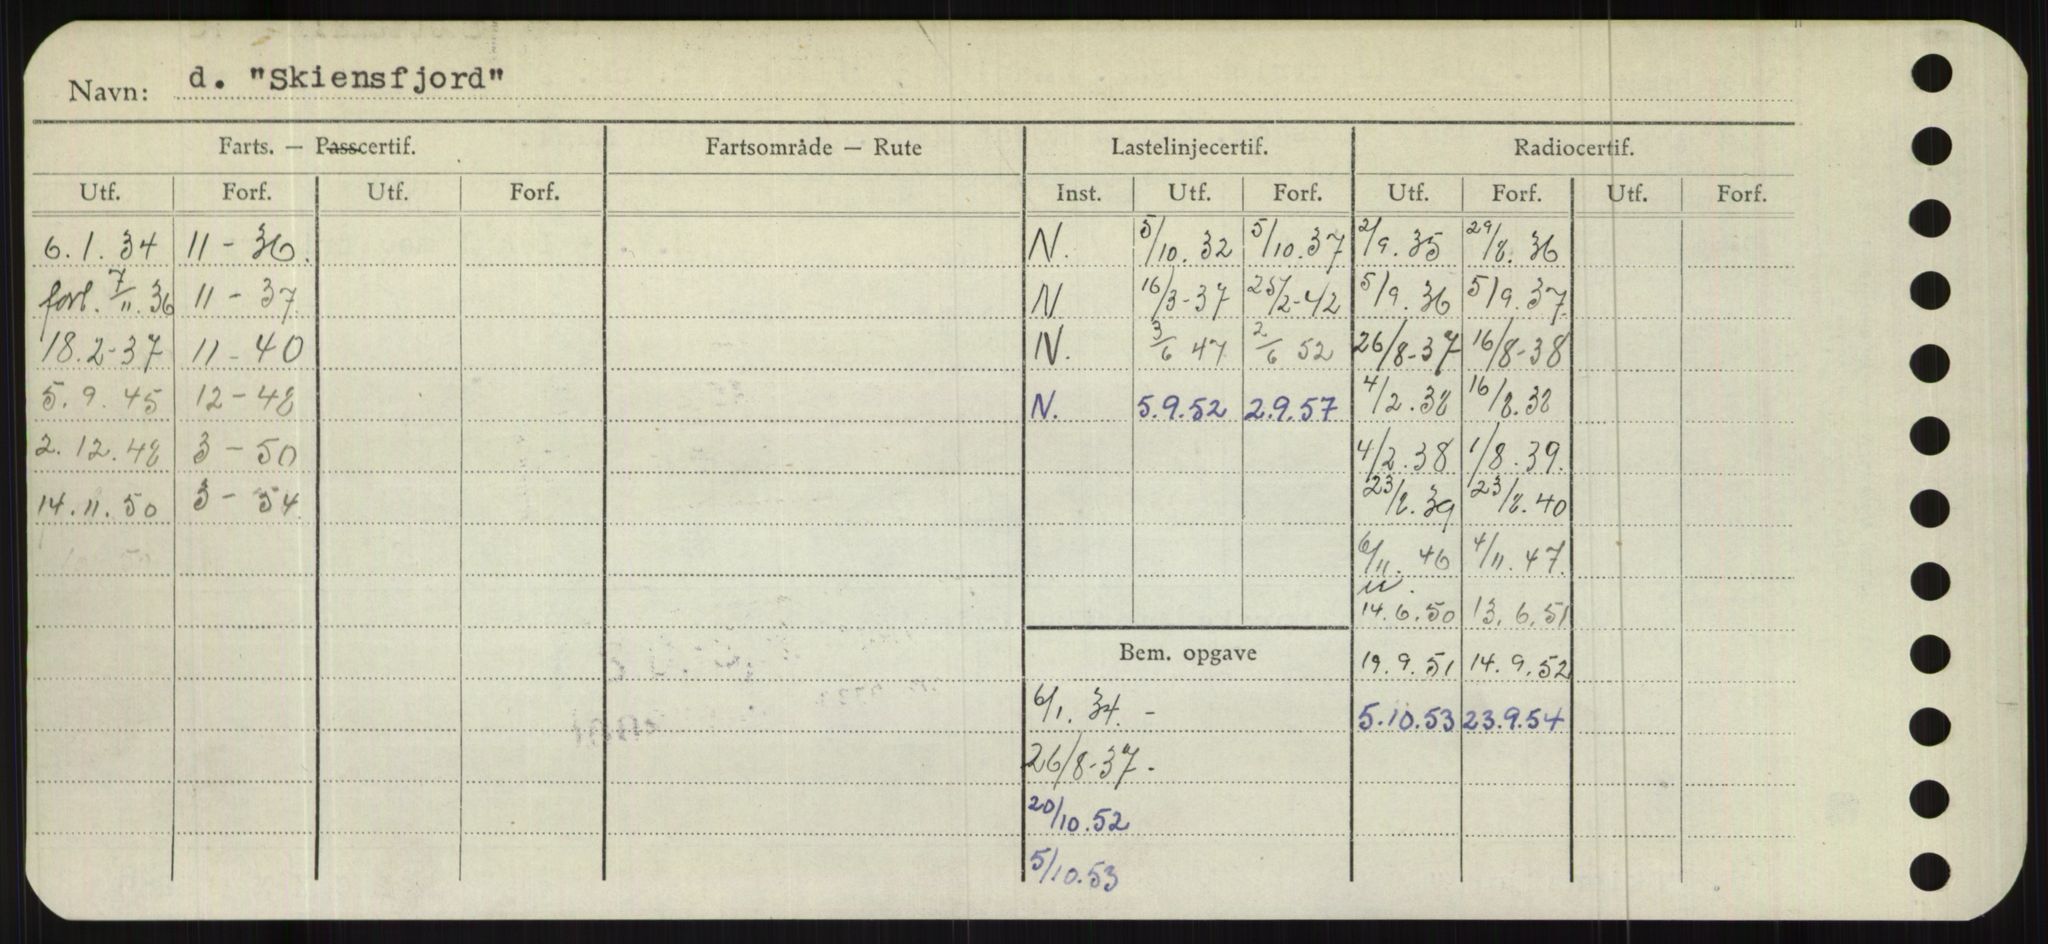 Navn: d. "Skiensfjord"
Farts. — Passcertif. Fartsområde — Rute Lastelinjecertif. Radiocertif.
Utf. Forf. Utf. Forf. Inst. Utf. Forf. Utf. Forf. Utf. Forf.
6.1.34 11-36. N. 5/10.32 5/10.37 2/9.35 29/8.36
forl. 7/11.36 11-37 N 16/3-37 25/2-42 5/9.36 5/9.37.
18.2-37 11-40 N. 3/6 47 2/6 52 26/8-37 16/8-38
5.9.45 12-48 N. 5.9.52 2.9.57 4/2.38 16/8.38
2.12.48 3-50 4/2.38 1/8.39.
14.11.50 3-54 23/8.39 23/8.40
6/11.46 4/11.47.
14.6.50 13.6.51
Bem. opgave 19.9.51 14.9.52
6/1.34.- 5.10.53 23.9.54
26/8-37.
20/10.52
5/10.53